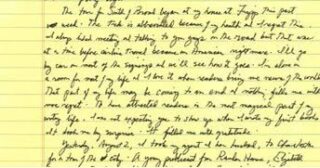 The tour for South of Broad began at my house at Fripp this past
week. The tour is abbreviated because of my health and I regret this
I always liked meeting and talking to you guys on the road but that was
at a time before airline travel became an American nightmare. I'll go
by car on most of the signings and we'll see how it goes. I'm alone in
a room for most of my life and I love it when readers bring me news of the world
That part of my life may be coming to an end and nothing fills me with
more regret. To have attracted readers is the most magical part of my
writing life. I was not expecting you to show up when I wrote my first books
It took me by surprise. It filled me with gratitude.
Yesterday, August 2, I took my agent and her husband, to Charleston
for a tour of the city. A guy producer for Random House, Elizabeth